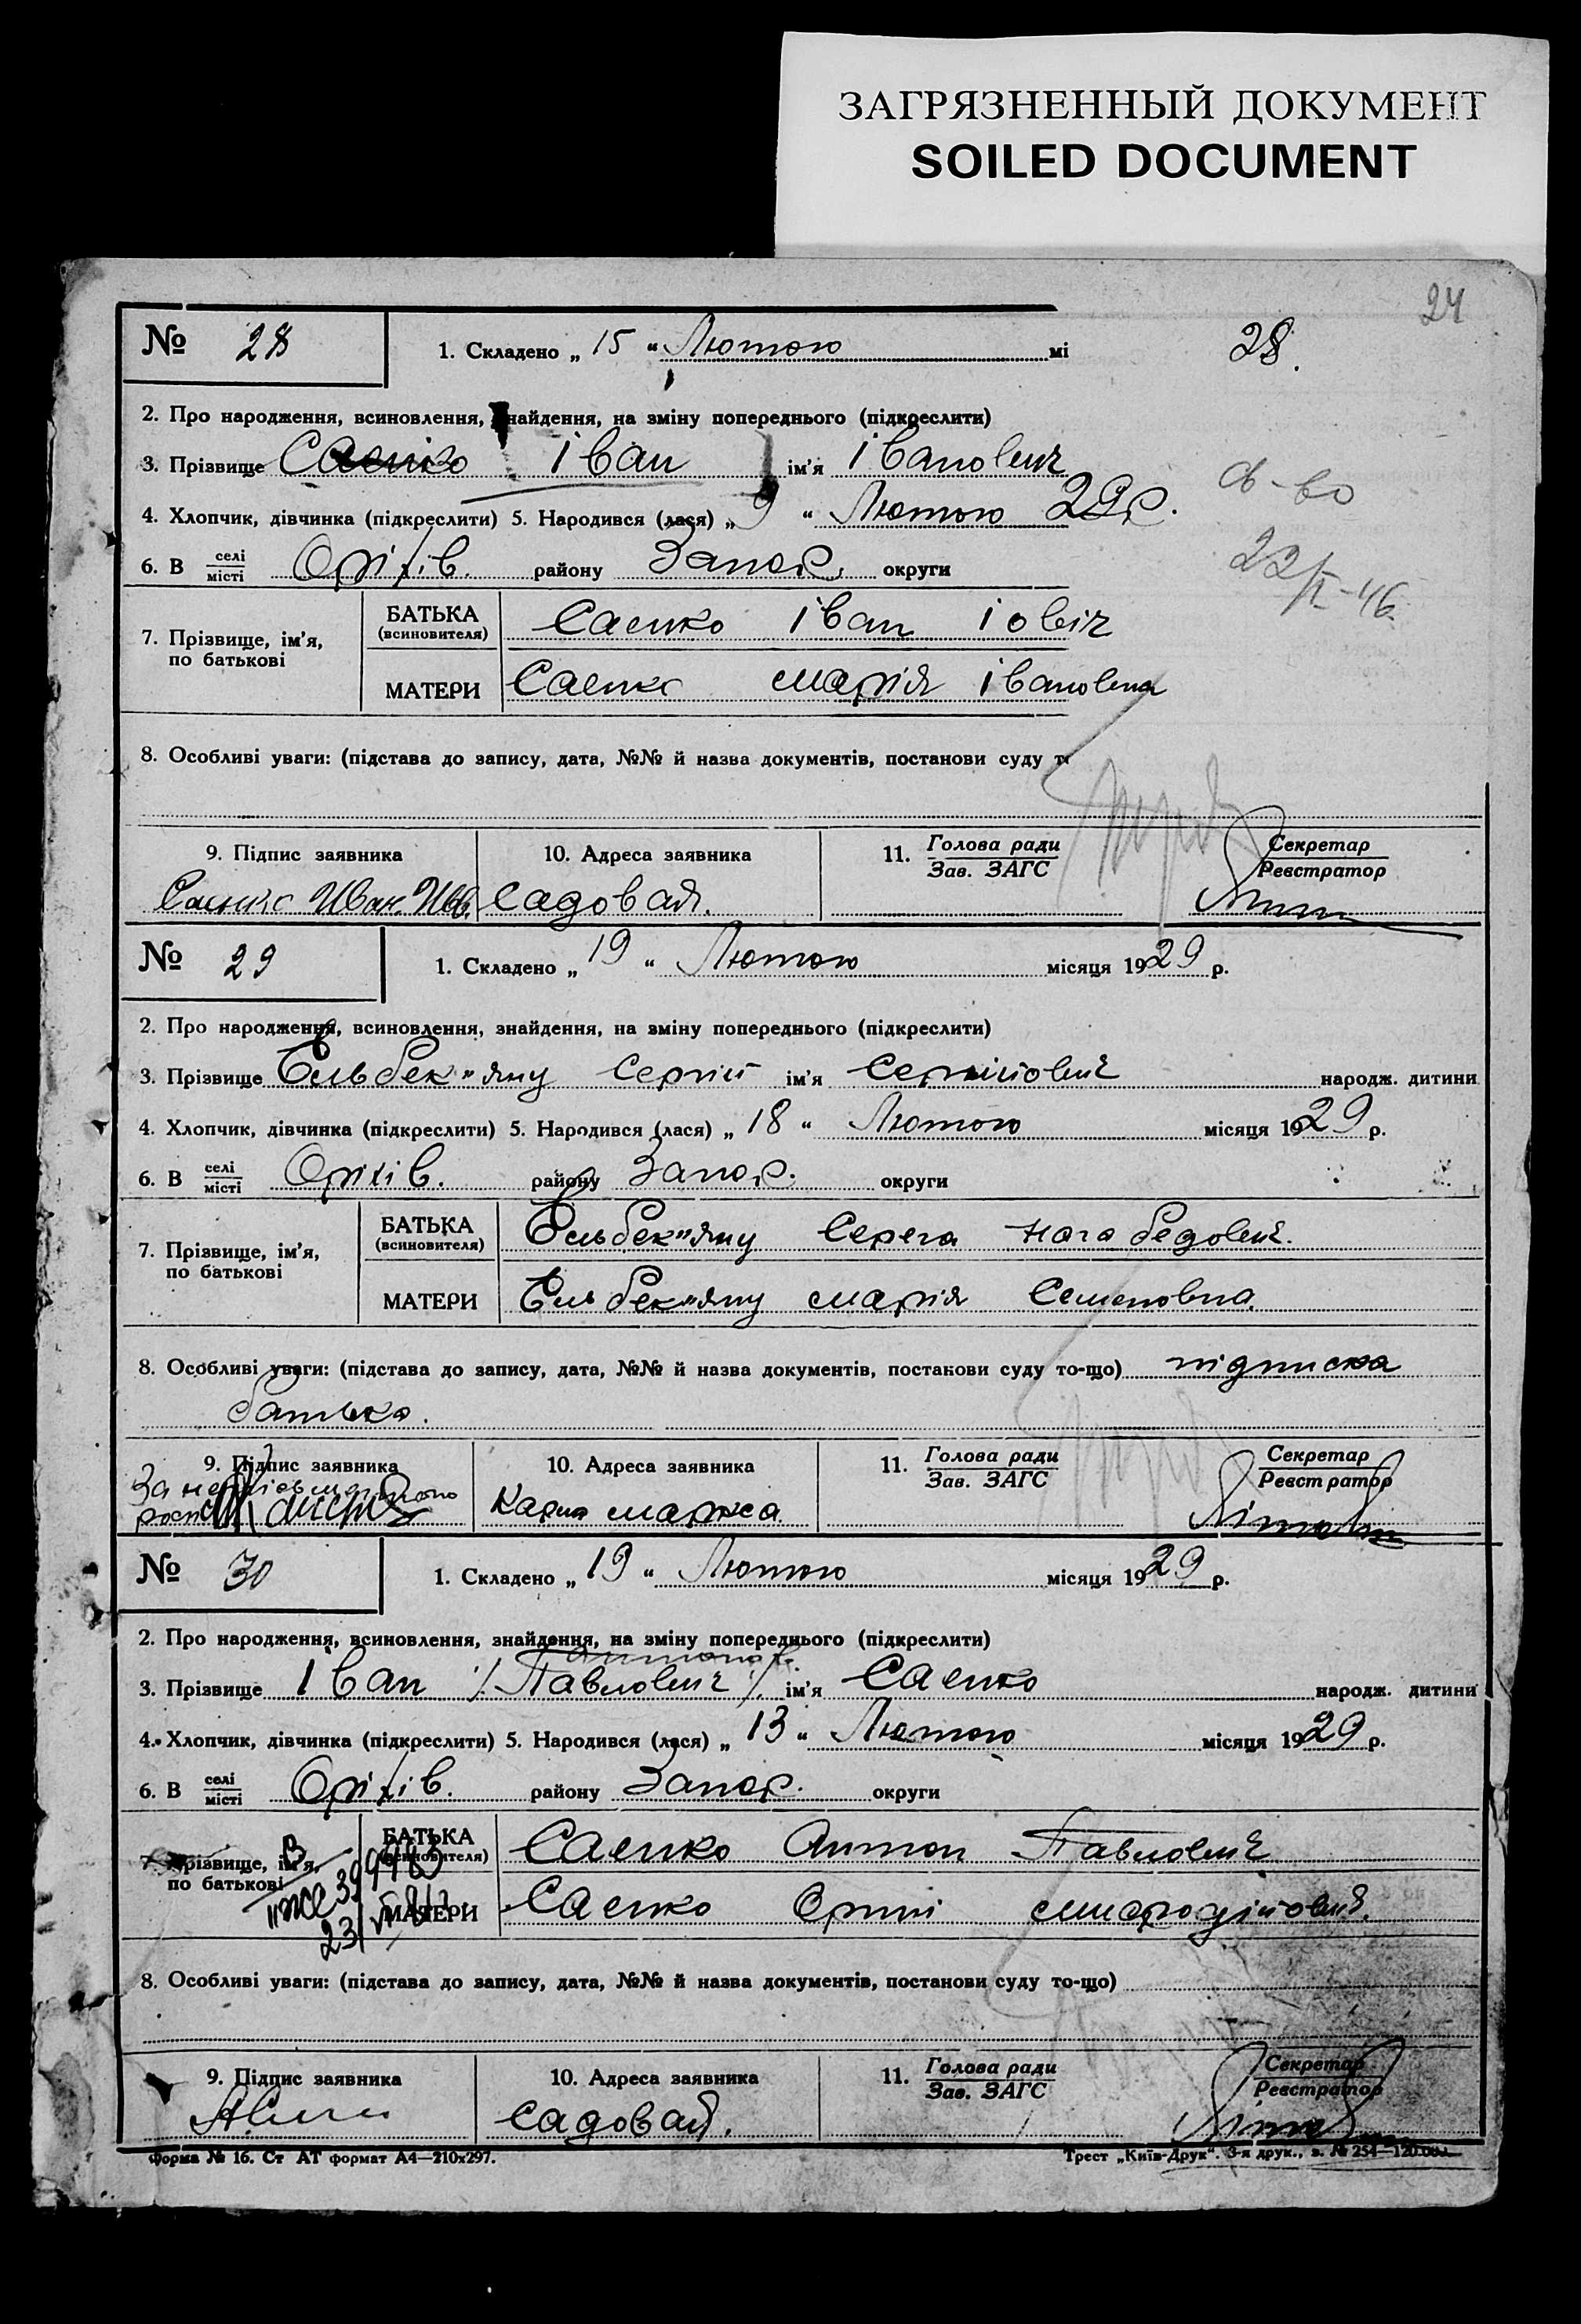 ЗАГРЯЗНЕННЫЙ ДОКУМЕНТ
SOILED DOCUMENT
24
№ 28 1. Складено „ 15 “ Лютого мі 28.
2. Про народження, всиновлення, знайдення, на зміну попереднього (підкреслити)
3. Прізвище Саенко Іван ім’я Іванович
4. Хлопчик, дівчинка (підкреслити) 5. Народився (лася) „ 9 “ Лютого 29р.
6. В селі місті Оріхів. району Запор. округи
7. Прізвище, ім’я, по батькові
БАТЬКА (всиновителя) Саенко Іван Іовіч
МАТЕРИ Саенко Марія Івановна
8. Особливі уваги: (підстава до запису, дата, №№ й назва документів, постанови суду т
9. Підпис заявника 10. Адреса заявника 11. Голова ради Зав. ЗАГС Секретар Реєстратор
Саенко Иван. Садовая.
№ 29 1. Складено „ 19 “ Лютого місяця 1929 р.
2. Про народження, всиновлення, знайдення, на зміну попереднього (підкреслити)
3. Прізвище Ельбек"янц Сергій ім’я Сергійович народж. дитини
4. Хлопчик, дівчинка (підкреслити) 5. Народився (лася) „ 18 “ Лютого місяця 1929 р.
6. В селі місті Оріхів. району Запор. округи
7. Прізвище, ім’я, по батькові
БАТЬКА (всиновителя) Ельбек"янц Серега
МАТЕРИ Ельбек"янц Марія Семеновна.
8. Особливі уваги: (підстава до запису, дата, №№ й назва документів, постанови суду то-що) підписка
батька.
9. Підпис заявника 10. Адреса заявника 11. Голова ради Зав. ЗАГС Секретар Реєстратор
За Карла Маркса
№ 30 1. Складено „ 19 “ Лютого місяця 1929 р.
2. Про народження, всиновлення, знайдення, на зміну попереднього (підкреслити)
3. Прізвище Іван Павлович ім’я Саенко народж. дитини
4. Хлопчик, дівчинка (підкреслити) 5. Народився (лася) „ 13 “ Лютого місяця 1929 р.
6. В селі місті Оріхів. району Запор. округи
7. Прізвище, ім’я, по батькові
БАТЬКА (всиновителя) Саенко Антон Павлович
МАТЕРИ Саенко
8. Особливі уваги: (підстава до запису, дата, №№ й назва документів, постанови суду то-що)
9. Підпис заявника 10. Адреса заявника 11. Голова ради Зав. ЗАГС Секретар Реєстратор
Садовая.
Форма № 16. Ст АТ формат А4—210х297. Трест „Київ-Друк“. 3-я друк., з. № 254—120.000